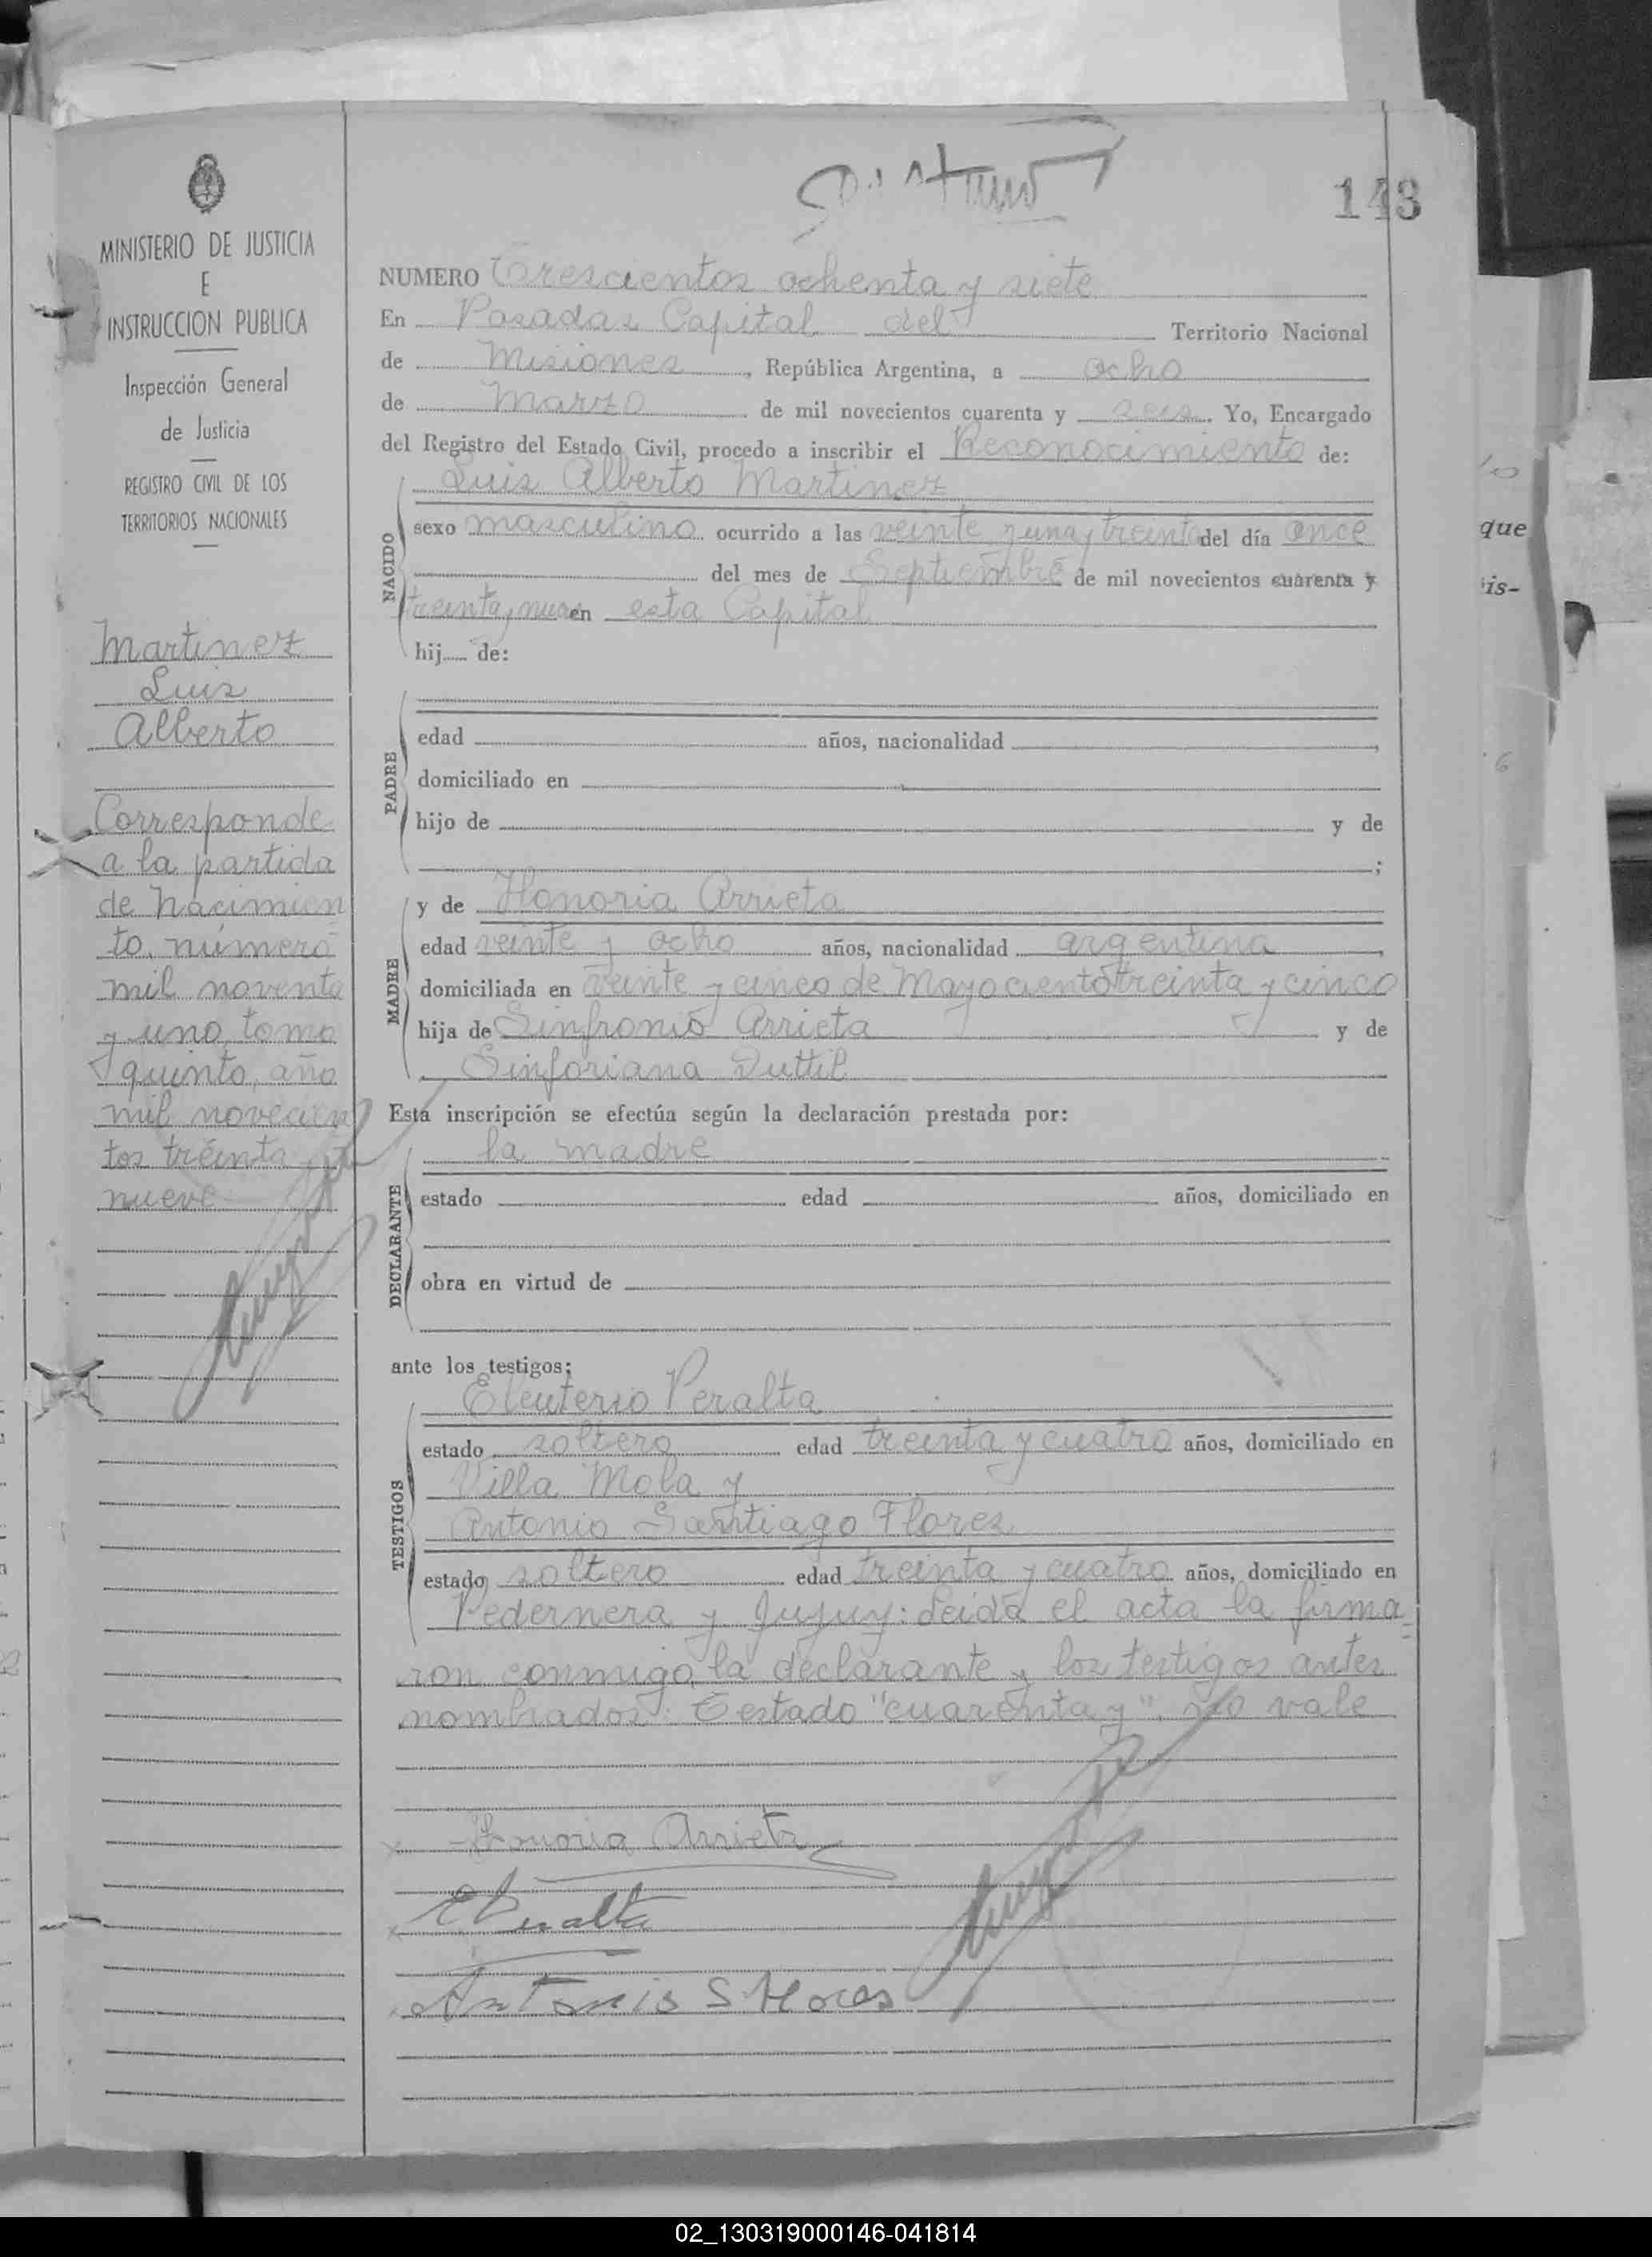 143
MINISTERIO DE JUSTICIA
E
INSTRUCCION PUBLICA
Inspección General
de Justicia
REGISTRO CIVIL DE LOS
TERRITORIOS NACIONALES
Martinez
Luis
Alberto
Corresponde
a la partida
de Nacimien
to, número
mil noventa
y uno, tomo
quinto, año
mil novecien
tos treinta y
nueve
NUMERO Trescientos ochenta y siete
En Posadas Capital del Territorio Nacional
de Misiones, República Argentina, a ocho
de Marzo de mil novecientos cuarenta y seis. Yo, Encargado
del Registro del Estado Civil, procedo a inscribir el Reconocimiento de:
NACIDO
Luis Alberto Martinez
sexo masculino ocurrido a las veinte y una y treinta del día once
del mes de Septiembre de mil novecientos cuarenta y
treinta y nueve en esta Capital
hij de:
PADRE
edad años, nacionalidad ,
domiciliado en
hijo de y de
;
MADRE
y de Honoria Arrieta
edad veinte y ocho años, nacionalidad argentina,
domiciliada en veinte y cinco de Mayo ciento treinta y cinco
hija de Sinfronio Arrieta y de
Sinforiana Duttil
Esta inscripción se efectúa según la declaración prestada por:
DECLARANTE
la madre
estado edad años, domiciliado en
obra en virtud de
ante los testigos:
TESTIGOS
Eleuterio Peralta
estado soltero edad treinta y cuatro años, domiciliado en
Villa Mola y
Antonio Santiago Flores
estado soltero edad treinta y cuatro años, domiciliado en
Pedernera y Jujuy: Leida el acta la firma=
ron conmigo, la declarante y los testigos antes
nombrados: Testado "cuarenta y". No vale
Honoria Arrieta
E Peralta
Antonio S. Flores
que
is-
6
02_130319000146-041814